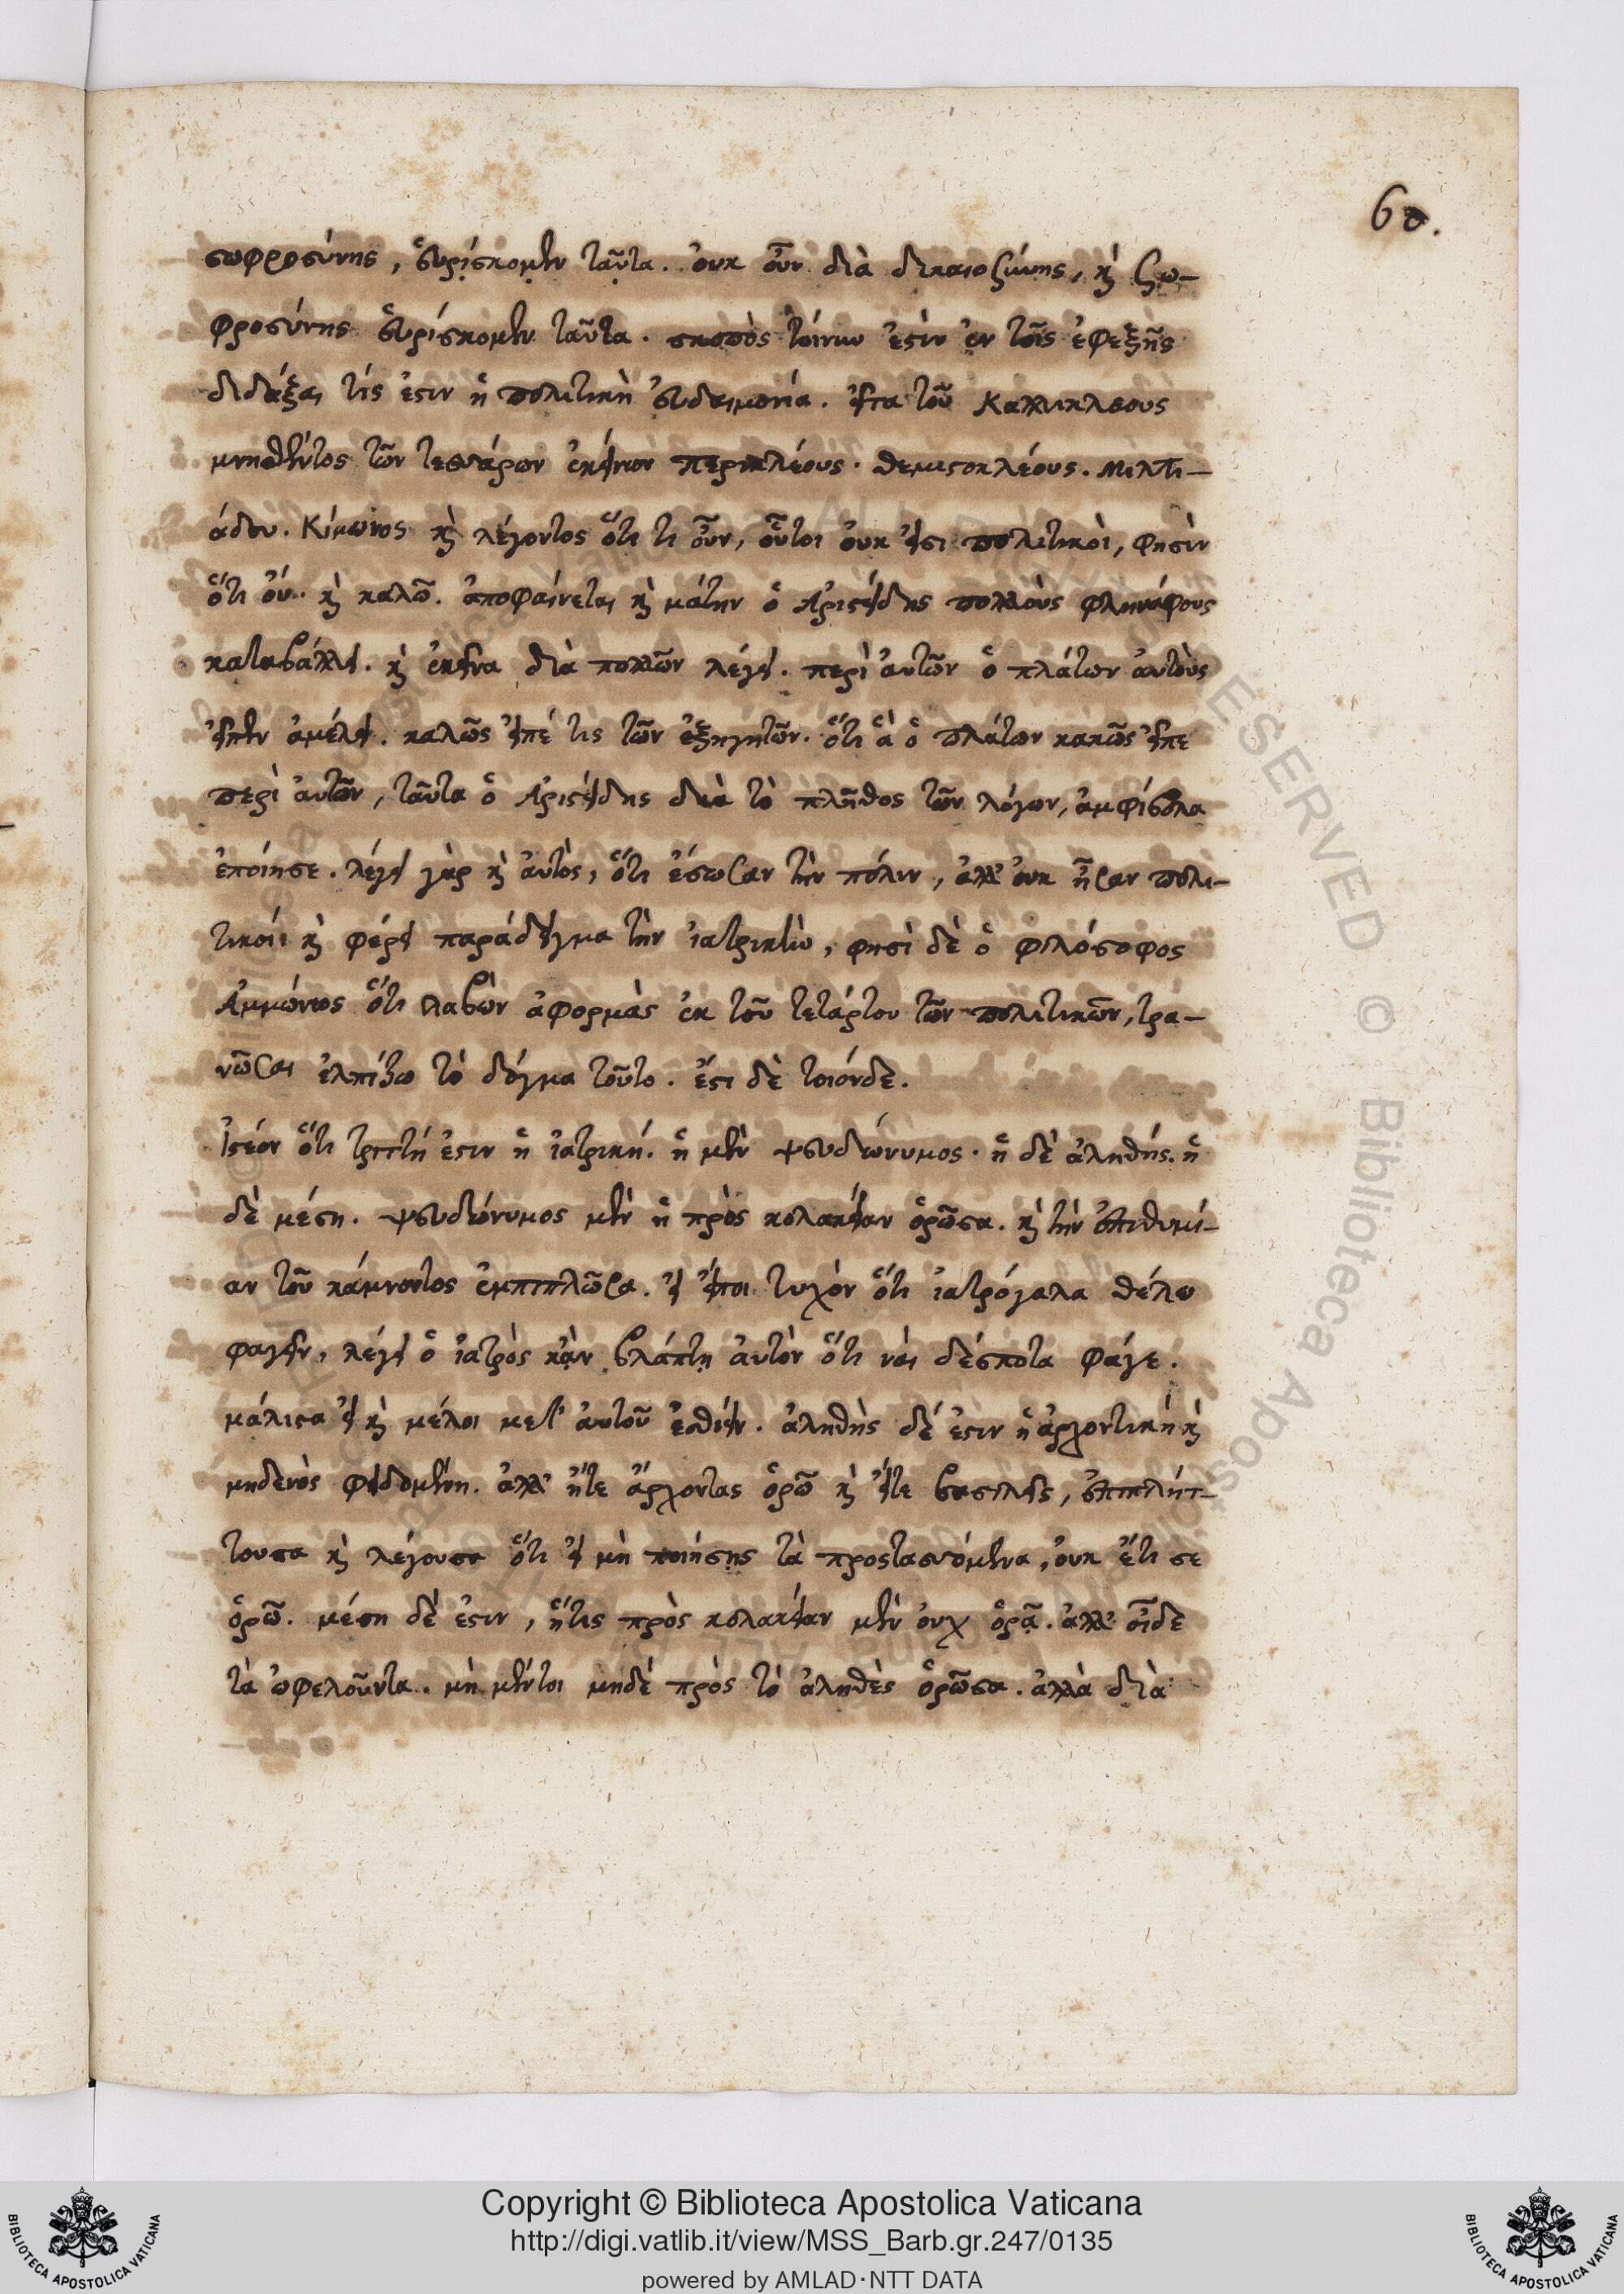 60.
σωφροσύνης, εὑρίσκομεν ταῦτα. οὐκ οὖν διὰ δικαιοσύνης, καὶ σω-
φροσύνης εὑρίσκομεν ταῦτα. σκοπὸς τοίνυν ἐστὶν ἐν τοῖς ἐφεξῆς
διδάξαι τίς ἐστιν ἡ πολιτικὴ εὐδαιμονία. εἶτα τοῦ Καλλικλέους
μνησθέντος τῶν τεσσάρων ἐκείνων περικλέους. θεμιστοκλέους. Μιλτι-
άδου. Κίμωνος καὶ λέγοντος ὅτι τί οὖν, οὗτοι οὐκ εἰσι πολιτικοὶ, φησὶν
ὅτι οὐ. καὶ καλῶ. ἀποφαίνεται καὶ μάτην ὁ Ἀριστείδης πολλοὺς φληνάφους
καταβάλλει. καὶ ἐκεῖνα διὰ πολλῶν λέγει. περὶ αὐτῶν ὁ πλάτων αὐτοὺς
εἰπεῖν ἀμέλει. καλῶς εἶπέ τις τῶν ἐξηγητῶν. ὅτι ἃ ὁ πλάτων κακῶς εἶπε
περὶ αὐτῶν, ταῦτα ὁ Ἀριστείδης διὰ τὸ πλῆθος τῶν λόγων, ἀμφίβολα
ἐποίησε. λέγει γὰρ καὶ αὐτὸς, ὅτι ἔσωσαν τὴν πόλιν, ἀλλ' οὐκ ἦσαν πολι-
τικοί. καὶ φέρει παράδειγμα τὴν ἰατρικὴν, φησὶ δὲ ὁ φιλόσοφος
Ἀμμώνιος ὅτι λαβὼν ἀφορμὰς ἐκ τοῦ τετάρτου τῶν πολιτικῶν, τρα-
νῶσαι ἐλπίζω τὸ δόγμα τοῦτο. ἔστι δὲ τοιόνδε.
Ἰστέον ὅτι τριττή ἐστιν ἡ ἰατρική. ἡ μὲν ψευδώνυμος. ἡ δὲ ἀληθής. ἡ
δὲ μέση. ψευδώνυμος μὲν ἡ πρὸς κολακείαν ὁρῶσα. καὶ τὴν ἐπιθυμί-
αν τοῦ κάμνοντος ἐμπιπλῶσα. εἰ εἴποι τυχὸν ὅτι ἰατρόγαλα θέλω
φαγεῖν, λέγει ὁ ἰατρὸς κἂν βλάπτῃ αὐτὸν ὅτι ναὶ δέσποτα φάγε.
μάλιστα εἰ καὶ μέλοι μετ' αὐτοῦ ἐσθίειν. ἀληθὴς δέ ἐστιν ἡ ἀρχοντικὴ καὶ
μηδενὸς φειδομένη. ἀλλ' εἴτε ἄρχοντας ὁρῶ καὶ εἴτε βασιλεῖς, ἐπιπλήτ-
τουσα καὶ λέγουσα ὅτι εἰ μὴ ποιήσῃς τὰ προστασσόμενα, οὐκ ἔτι σε
ὁρῶ. μέση δὲ ἐστιν, ἥτις πρὸς κολακείαν μὲν οὐχ ὁρᾷ. ἀλλ' οἶδε
τὰ ὠφελοῦντα. μὴ μέντοι μηδὲ πρὸς τὸ ἀληθὲς ὁρῶσα. ἀλλὰ διὰ
Copyright © Biblioteca Apostolica Vaticana
http://digi.vatlib.it/view/MSS_Barb.gr.247/0135
powered by AMLAD·NTT DATA
BIBLIOTECA APOSTOLICA VATICANA
BIBLIOTECA APOSTOLICA VATICANA